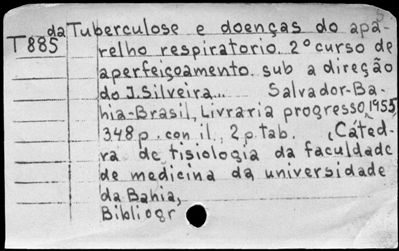 da Tuberculose e doenças do apa-
T885 relho respiratorio 2º curso de
aperfeiçoamento sub a direção
do J. Silveira... Salvador-Ba-
hia-Brasil, Livraria progresso, 1955
348 p. con il., 2 p. tab. (Cáted-
ra de tisiologia da faculdade
de medicina da universidade
da Bahia,
Bibliogr